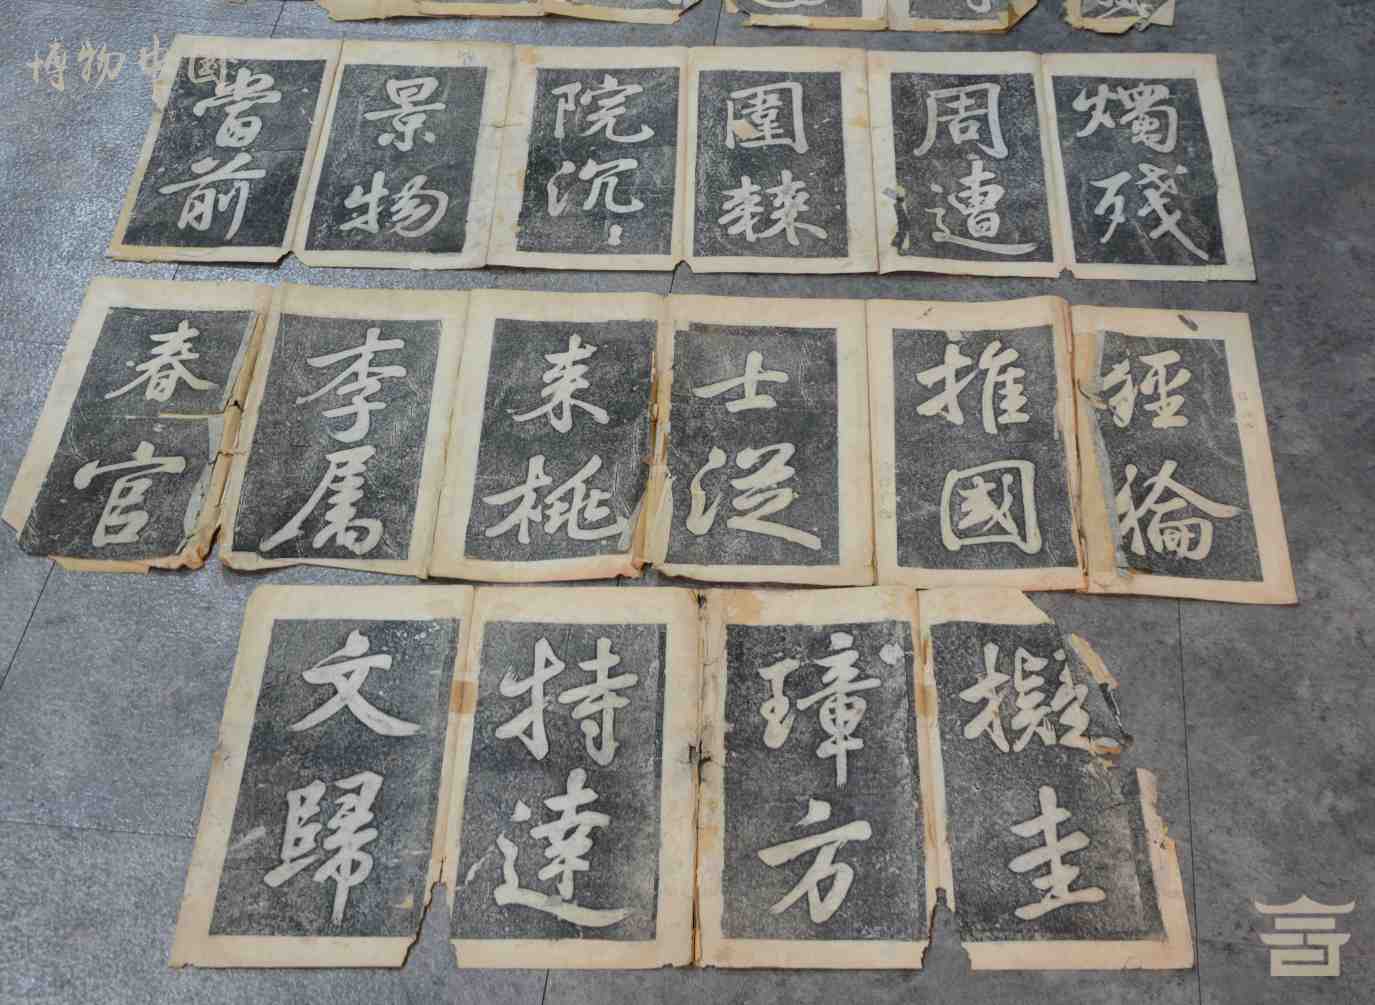 博物中國
燭殘
周遭
圍棘
院沉〻
景物
當前
經綸
推國
士從
来桃
李属
春官
擬圭
璋方
特達
文歸